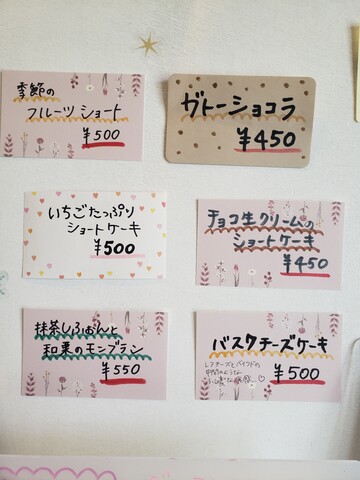 季節の
フルーツショート
¥500
ガトーショコラ
¥450
いちごたっぷり
ショートケーキ
¥500
チョコ生クリームの
ショートケーキ
¥450
抹茶しふぉんと
和栗のモンブラン
¥550
バスクチーズケーキ
¥500
レアチーズとベイクドの
中間のような